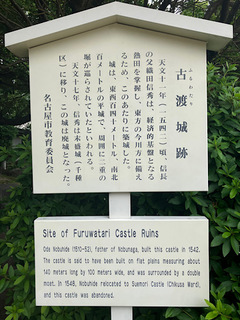 古渡城跡
ふるわたり
天文十一年(一五四二)頃、信長
の父織田信秀は、経済的基盤となる
熱田を掌握し、東方の今川方に備え
るため、このあたりに築城した。
城は、東西百四十メートル、南北
百メートルの平城で、周囲に二重の
堀が巡らされていたといわれる。
天文十七年、信秀は末盛城(千種
区)に移り、この城は廃城となった。
名古屋市教育委員会
Site of Furuwatari Castle Ruins
Oda Nobuhide (1510-52), father of Nobunaga, built this castle in 1542.
The castle is said to have been built on flat plains measuring about
140 meters long by 100 meters wide, and was surrounded by a double
moat. In 1548, Nobuhide relocated to Suemori Castle (Chikusa Ward),
and this castle was abandoned.